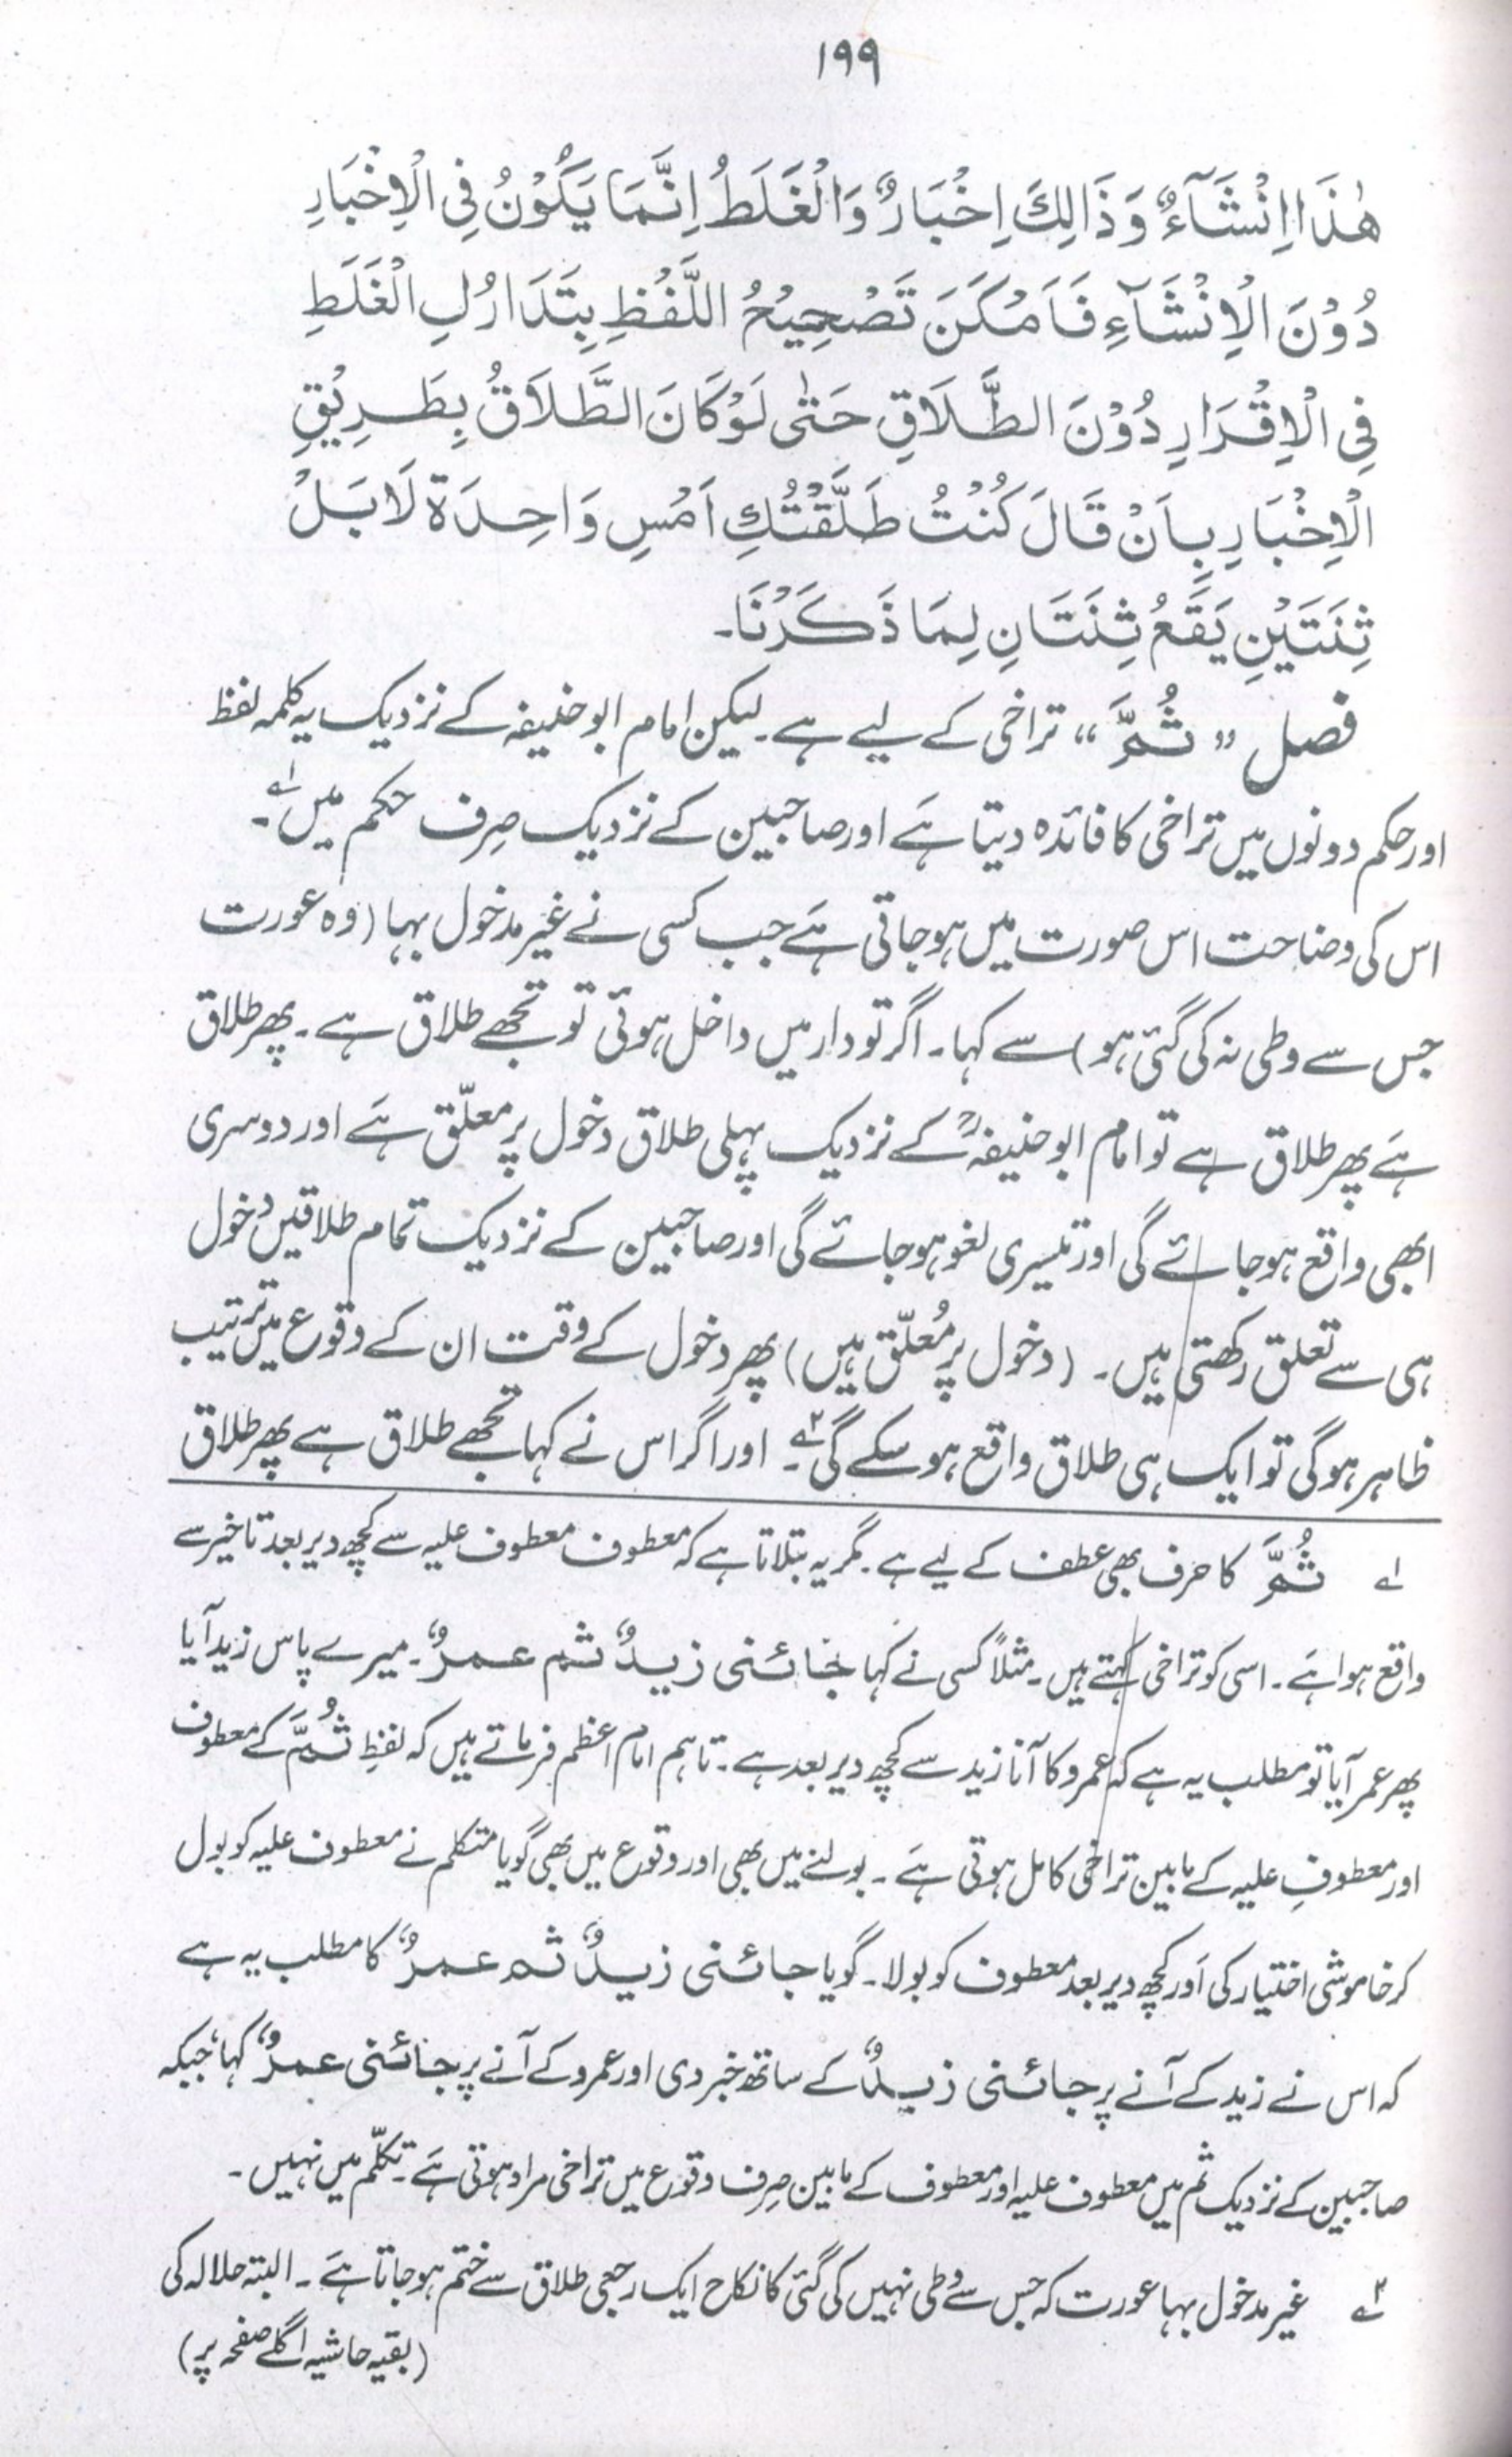 ۱۹۹
هٰذَا اِنْشَآءٌ وَذَالِكَ اِخْبَارٌ وَالْغَلَطُ اِنَّمَا يَكُوْنُ فِى الْاِخْبَارِ
دُوْنَ الْاِنْشَآءِ فَاَمْكَنَ تَصْحِيْحُ اللَّفْظِ بِتَدَارُكِ الْغَلَطِ
فِى الْاِقْرَارِ دُوْنَ الطَّلَاقِ حَتّٰى لَوْ كَانَ الطَّلَاقُ بِطَرِيْقِ
الْاِخْبَارِ بِاَنْ قَالَ كُنْتُ طَلَّقْتُكِ اَمْسِ وَاحِدَة لَا بَلْ
ثِنَتَيْنِ يَقَعُ ثِنَتَانِ لِمَا ذَكَرْنَا۔
فصل ”ثُمَّ“ تراخی کے لیے ہے۔ لیکن امام ابو حنیفہ کے نزدیک یہ کلمہ لفظ
اور حکم دونوں میں تراخی کا فائدہ دیتا ہَے اور صاحبین کے نزدیک صِرف حکم میں ؎۱۔
اس کی وضاحت اس صورت میں ہو جاتی ہَے جب کسی نے غیر مدخول بہا (وہ عورت
جس سے وطی نہ کی گئی ہو) سے کہا۔ اگر تو دار میں داخل ہوئی تو تجھے طلاق ہے۔ پھر طلاق
ہَے پھر طلاق ہے تو امام ابو حنیفہؒ کے نزدیک پہلی طلاق دخول پر معلّق ہَے اور دوسری
ابھی واقع ہو جائے گی اور تیسری لغو ہو جائے گی اور صاحبین کے نزدیک تمام طلاقیں دخول
ہی سے تعلق رکھتی ہیں۔ (دخول پر مُعلّق ہیں) پھر دخول کے وقت ان کے وقوع میں ترتیب
ظاہر ہو گی تو ایک ہی طلاق واقع ہو سکے گی ؎۲۔ اور اگر اس نے کہا تجھے طلاق ہے پھر طلاق
؎۱ ثُمَّ کا حرف بھی عطف کے لیے ہے۔ مگر یہ بتلاتا ہے کہ معطوف معطوف علیہ سے کچھ دیر بعد تاخیر سے
واقع ہوا ہَے۔ اسی کو تراخی کہتے ہیں۔ مثلاً کسی نے کہا جَائنی زیدٌ ثم عمرٌو۔ میرے پاس زید آیا
پھر عمر آیا تو مطلب یہ ہے کہ عمرو کا آنا زید سے کچھ دیر بعد ہے۔ تاہم امام اعظم فرماتے ہیں کہ لفظِ ثُمَّ کے معطوف
اور معطوفِ علیہ کے مابین تراخی کامل ہوتی ہَے۔ بولنے میں بھی اور وقوع میں بھی گویا متکلم نے معطوف علیہ کو بول
کر خاموشی اختیار کی اَور کچھ دیر بعد معطوف کو بولا۔ گویا جائنی زیدٌ ثم عمرٌو کا مطلب یہ ہے
کہ اس نے زید کے آنے پر جائنی زیدٌ کے ساتھ خبر دی اور عمرو کے آنے پر جَائنی عمرٌو کہا، جبکہ
صاحبین کے نزدیک ثم میں معطوف علیہ اور معطوف کے مابین صِرف وقوع میں تراخی مراد ہوتی ہَے۔ تکلّم میں نہیں۔
؎۲ غیر مدخول بہا عورت کہ جس سے وطی نہیں کی گئی کا نکاح ایک رجعی طلاق سے ختم ہو جاتا ہَے۔ البتہ حلالہ کی
(بقیہ حاشیہ اگلے صفحہ پر)